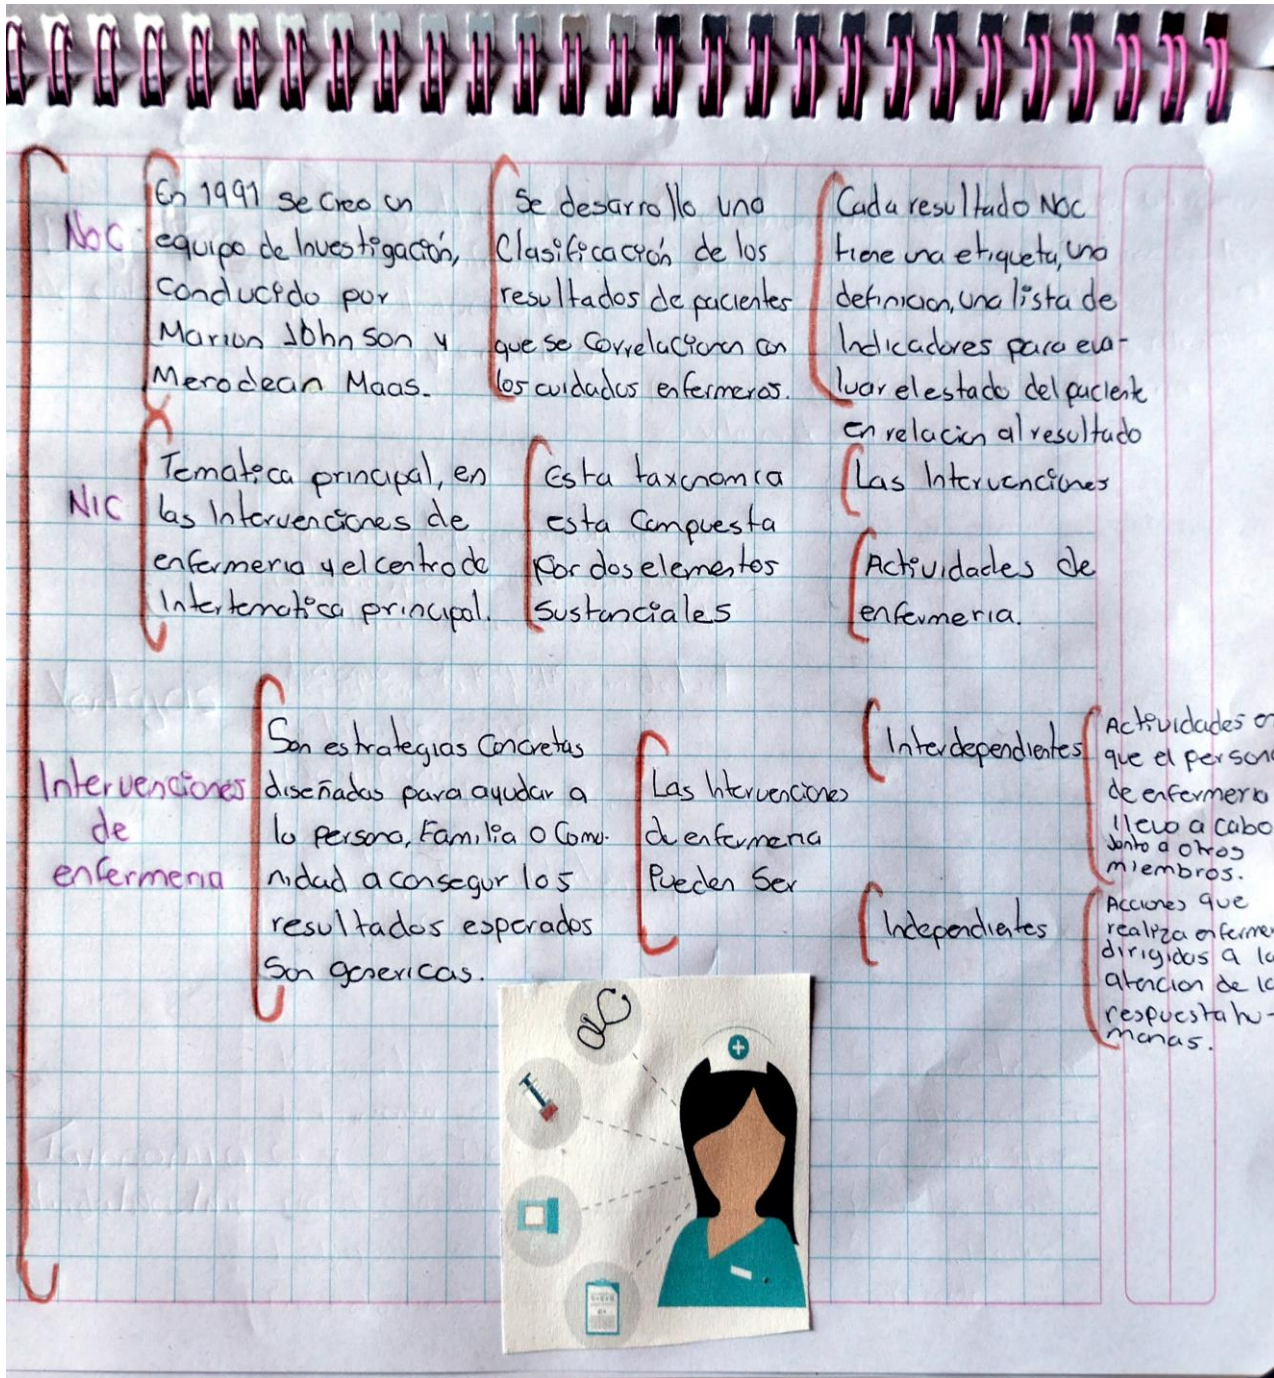 NOC
En 1991 se creo un
equipo de Investigación,
Conducido por
Marion Johnson y
Merodean Maas.
Se desarrollo una
Clasificación de los
resultados de pacientes
que se Correlacionan con
los cuidados enfermeros.
Cada resultado NOC
tiene una etiqueta, una
definicion, una lista de
Indicadores para eva-
luar el estado del paciente
en relacion al resultado
NIC
Tematica principal, en
las Intervenciones de
enfermeria y el centro de
Intertematica principal.
Esta taxonomia
esta Compuesta
Por dos elementos
Sustanciales
Las Intervenciones
Actividades de
enfermeria.
Intervenciones
de
enfermeria
Son estrategias Concretas
diseñadas para ayudar a
la Persona, Familia o Comu-
nidad a consegur los
resultados esperados
Son genericas.
Las Intervenciones
de enfermeria
Pueden Ser
Interdependientes
Actividades en
que el person
de enfermeria
lleva a cabo
Junto a otros
miembros.
Independientes
Acciones que
realiza enferme
dirigidas a la
atencion de la
respuesta hu-
manas.